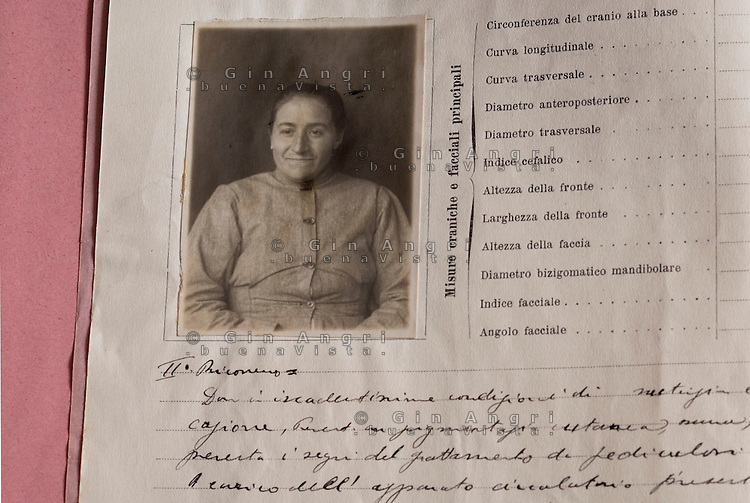 Circonferenza del cranio alla base
Curva longitudinale
Curva trasversale
Diametro anteroposteriore
Diametro trasversale
Indice cefalico
Altezza della fronte
Larghezza della fronte
Altezza della faccia
Diametro bizigomatico mandibolare
Indice facciale
Angolo facciale
Misure craniche e facciali principali
© Gin Angri
.buenaVista.
© Gin Angri
.buenaVista.
© Gin Angri
.buenaVista.
© Gin Angri
.buenaVista.
© Gin Angri
.buenaVista.
II°
condizioni di
cutanea,
presenta i segni del grattamento da pediculosi
A carico dell' apparato circolatorio